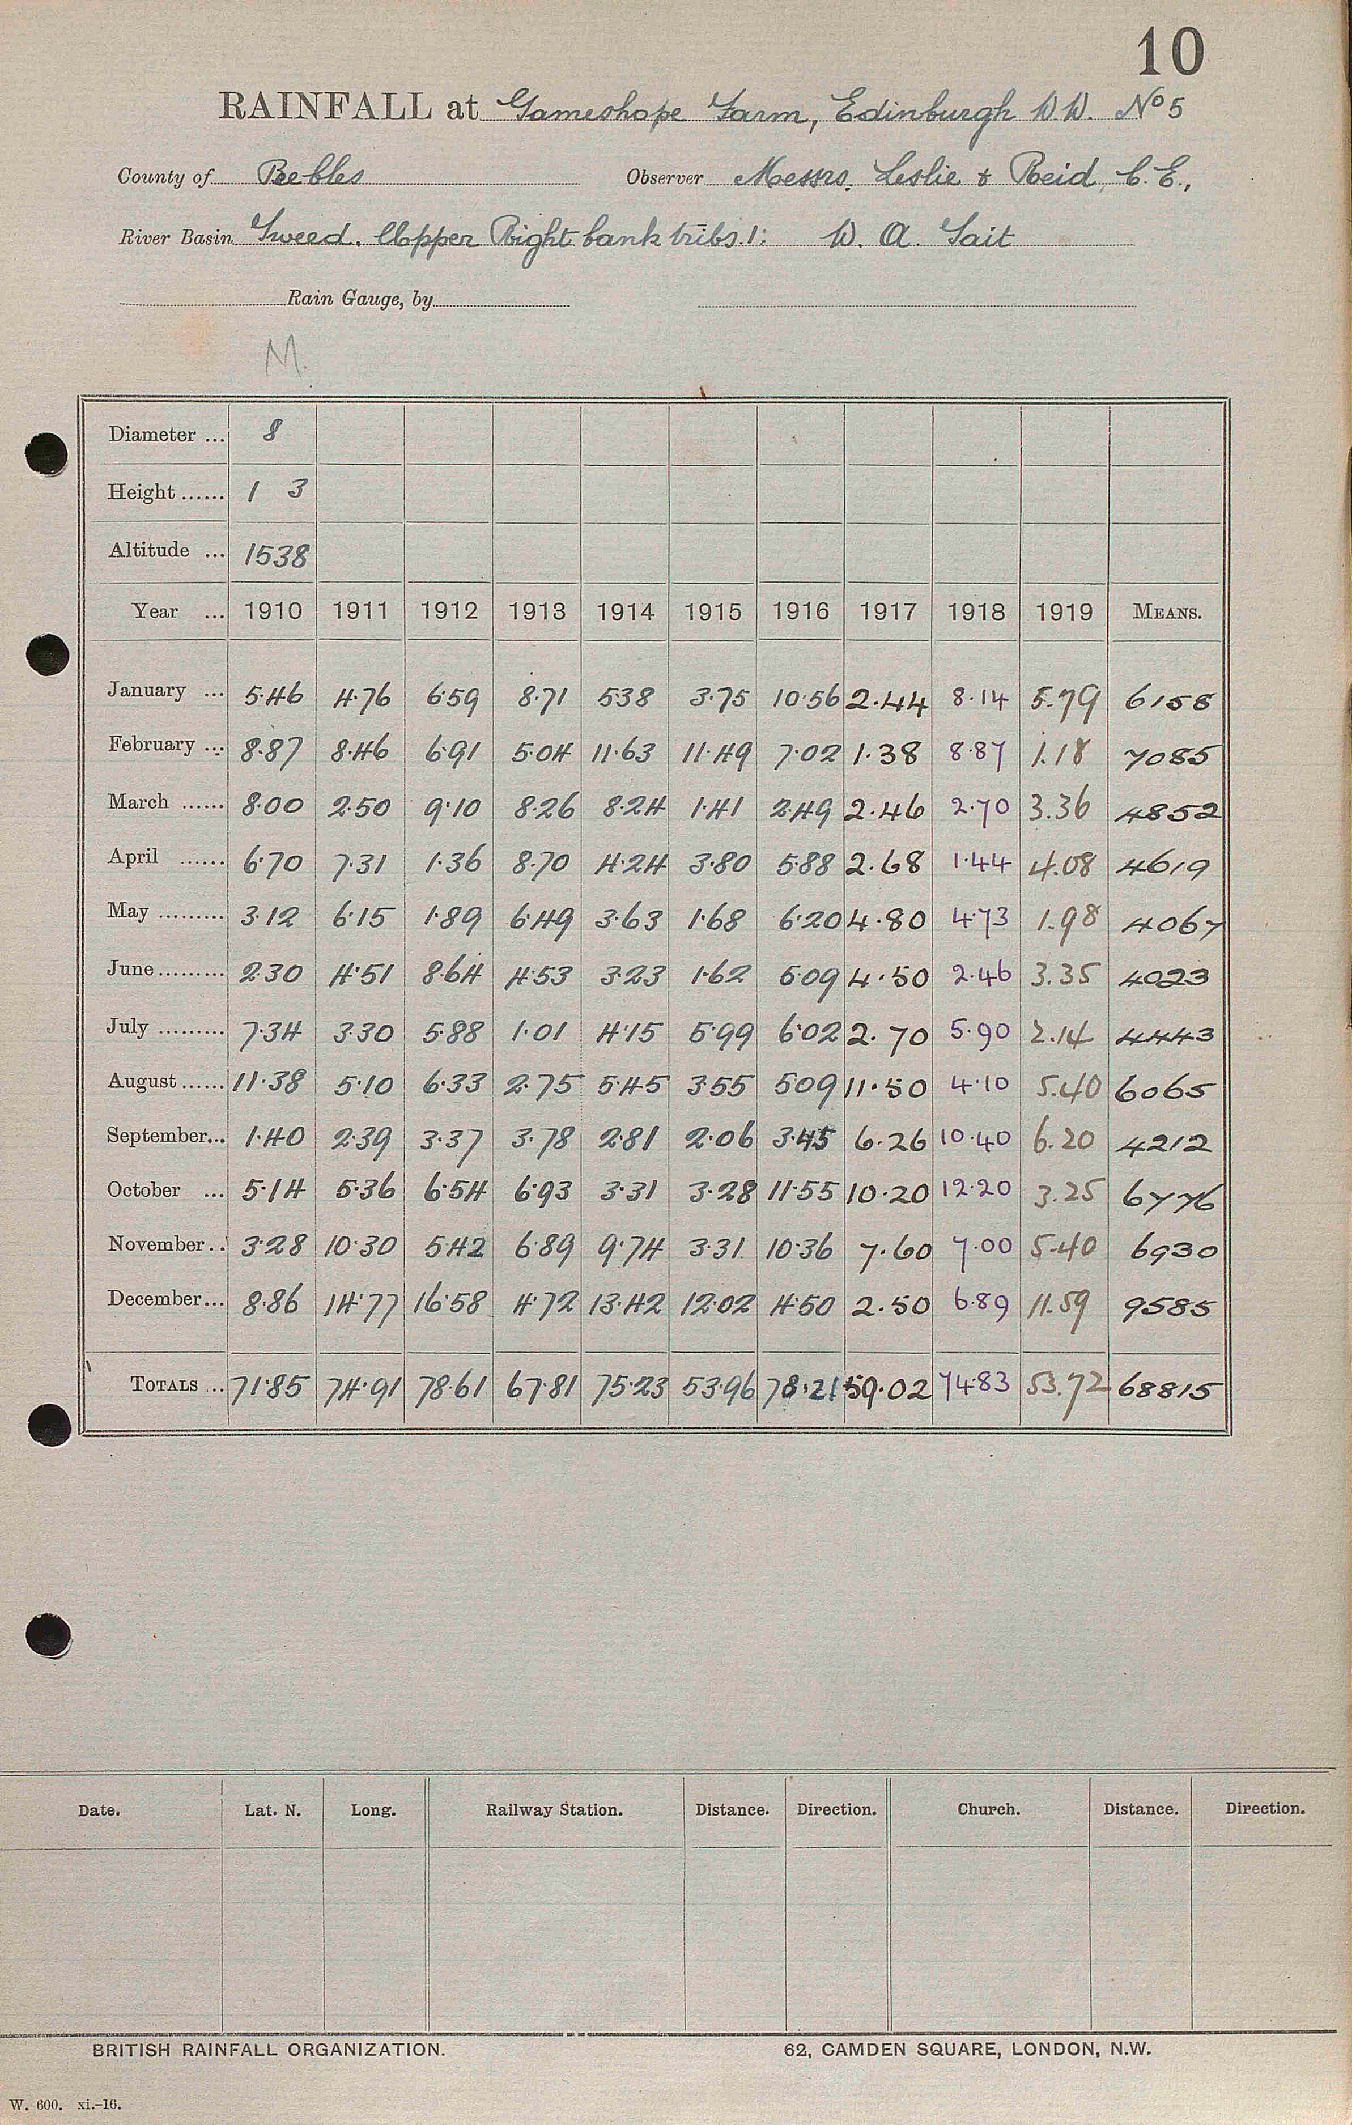 10
RAINFALL at Gameshope Farm, Edinburgh W.W. No 5
County of Peebles Observer Messrs. Leslie & Reid, C.E.,
River Basin Tweed. Upper Right bank tribs. 1: W. A. Tait
Rain Gauge, by
M.
Diameter ... 8
Height ...... 1 3
Altitude ... 1538
Year ... 1910 1911 1912 1913 1914 1915 1916 1917 1918 1919 MEANS.
January ... 5.46 4.76 6.59 8.71 5.38 3.75 10.56 2.44 8.14 5.79 6158
February ... 8.87 8.46 6.91 5.04 11.63 11.49 7.02 1.38 8.87 1.18 7085
March ...... 8.00 2.50 9.10 8.26 8.24 1.41 2.49 2.46 2.70 3.36 4852
April ...... 6.70 7.31 1.36 8.70 4.24 3.80 5.88 2.68 1.44 4.08 4619
May ......... 3.12 6.15 1.89 6.49 3.63 1.68 6.20 4.80 4.73 1.98 4067
June ......... 2.30 4.51 8.64 4.53 3.23 1.62 5.09 4.50 2.46 3.35 4023
July ......... 7.34 3.30 5.88 1.01 4.15 5.99 6.02 2.70 5.90 2.14 4443
August ...... 11.38 5.10 6.33 2.75 5.45 3.55 5.09 11.50 4.10 5.40 6065
September... 1.40 2.39 3.37 3.78 2.81 2.06 3.45 6.26 10.40 6.20 4212
October ... 5.14 5.36 6.54 6.93 3.31 3.28 11.55 10.20 12.20 3.25 6776
November .. 3.28 10.30 5.42 6.89 9.74 3.31 10.36 7.60 7.00 5.40 6930
December... 8.86 14.77 16.58 4.72 13.42 12.02 4.50 2.50 6.89 11.59 9585
TOTALS ... 71.85 74.91 78.61 67.81 75.23 53.96 78.21 59.02 74.83 53.72 68815
Date. Lat. N. Long. Railway Station. Distance. Direction. Church. Distance. Direction.
BRITISH RAINFALL ORGANIZATION. 62, CAMDEN SQUARE, LONDON, N.W.
W. 600. xi.–16.